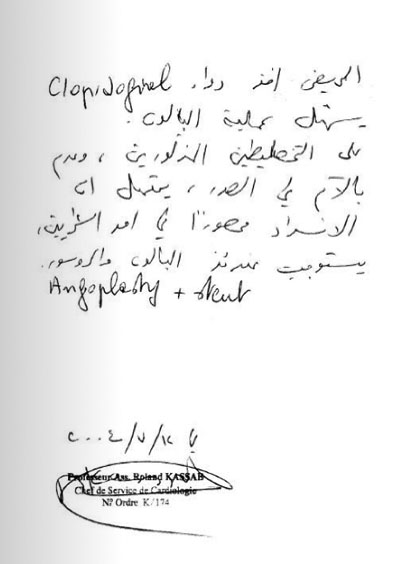 المريض اخذ دواء Clopidogrel
يسهّل عملية البالون.
على التخطيطين المذكورين، وعدم
بالآم في الصدر، يحتمل ان
الانسداد محصورًا في احد الشرايين،
يستوجب عندئذ البالون والروسور.
Angoplasty + stent
٢٠٠٤/٧/
Professeur Ass. Roland KASSAB
Chef de Service de Cardiologie
N? Ordre K/174